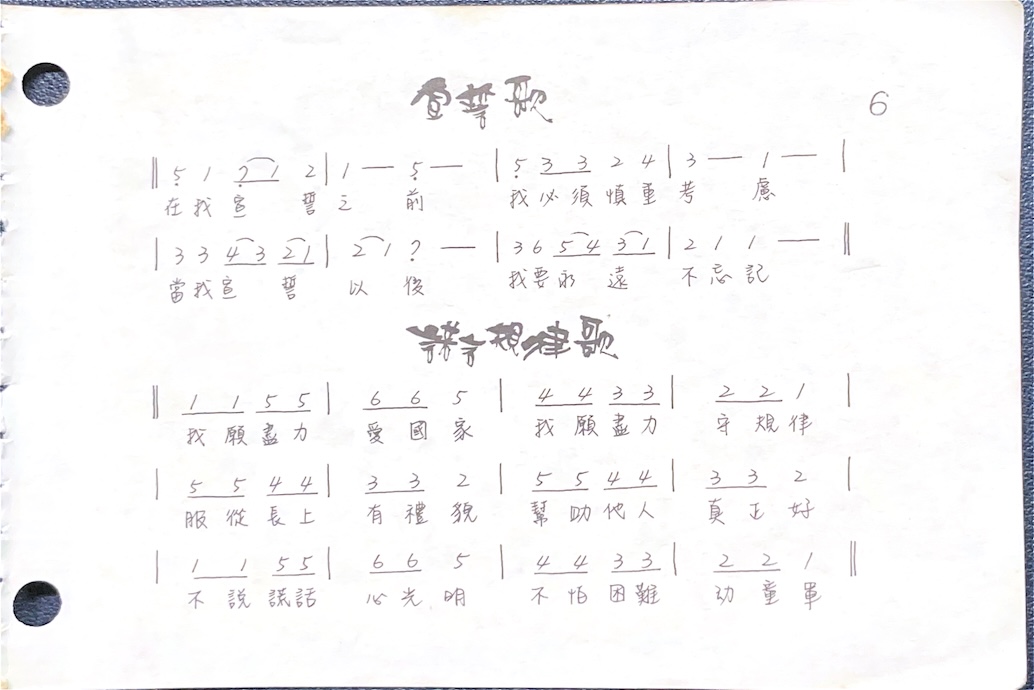 宣誓歌
6
‖ 5̣ 1 2 1 2 | 1 — 5̣ — | 5̣ 3 3 2 4 | 3 — 1 — |
在我宣 誓之 前 我必須慎重考 慮
| 3 3 4 3 2 1 | 2 1 2 — | 3 6 5 4 3 1 | 2 1 1 — ‖
當我宣 誓 以 後 我要永 遠 不忘記
諾言規律歌
‖ 1 1 5 5 | 6 6 5 | 4 4 3 3 | 2 2 1 |
我願盡力 愛國家 我願盡力 守規律
| 5 5 4 4 | 3 3 2 | 5 5 4 4 | 3 3 2 |
服從長上 有禮貌 幫助他人 真正好
| 1 1 5 5 | 6 6 5 | 4 4 3 3 | 2 2 1 ‖
不說謊話 心光明 不怕困難 幼童軍